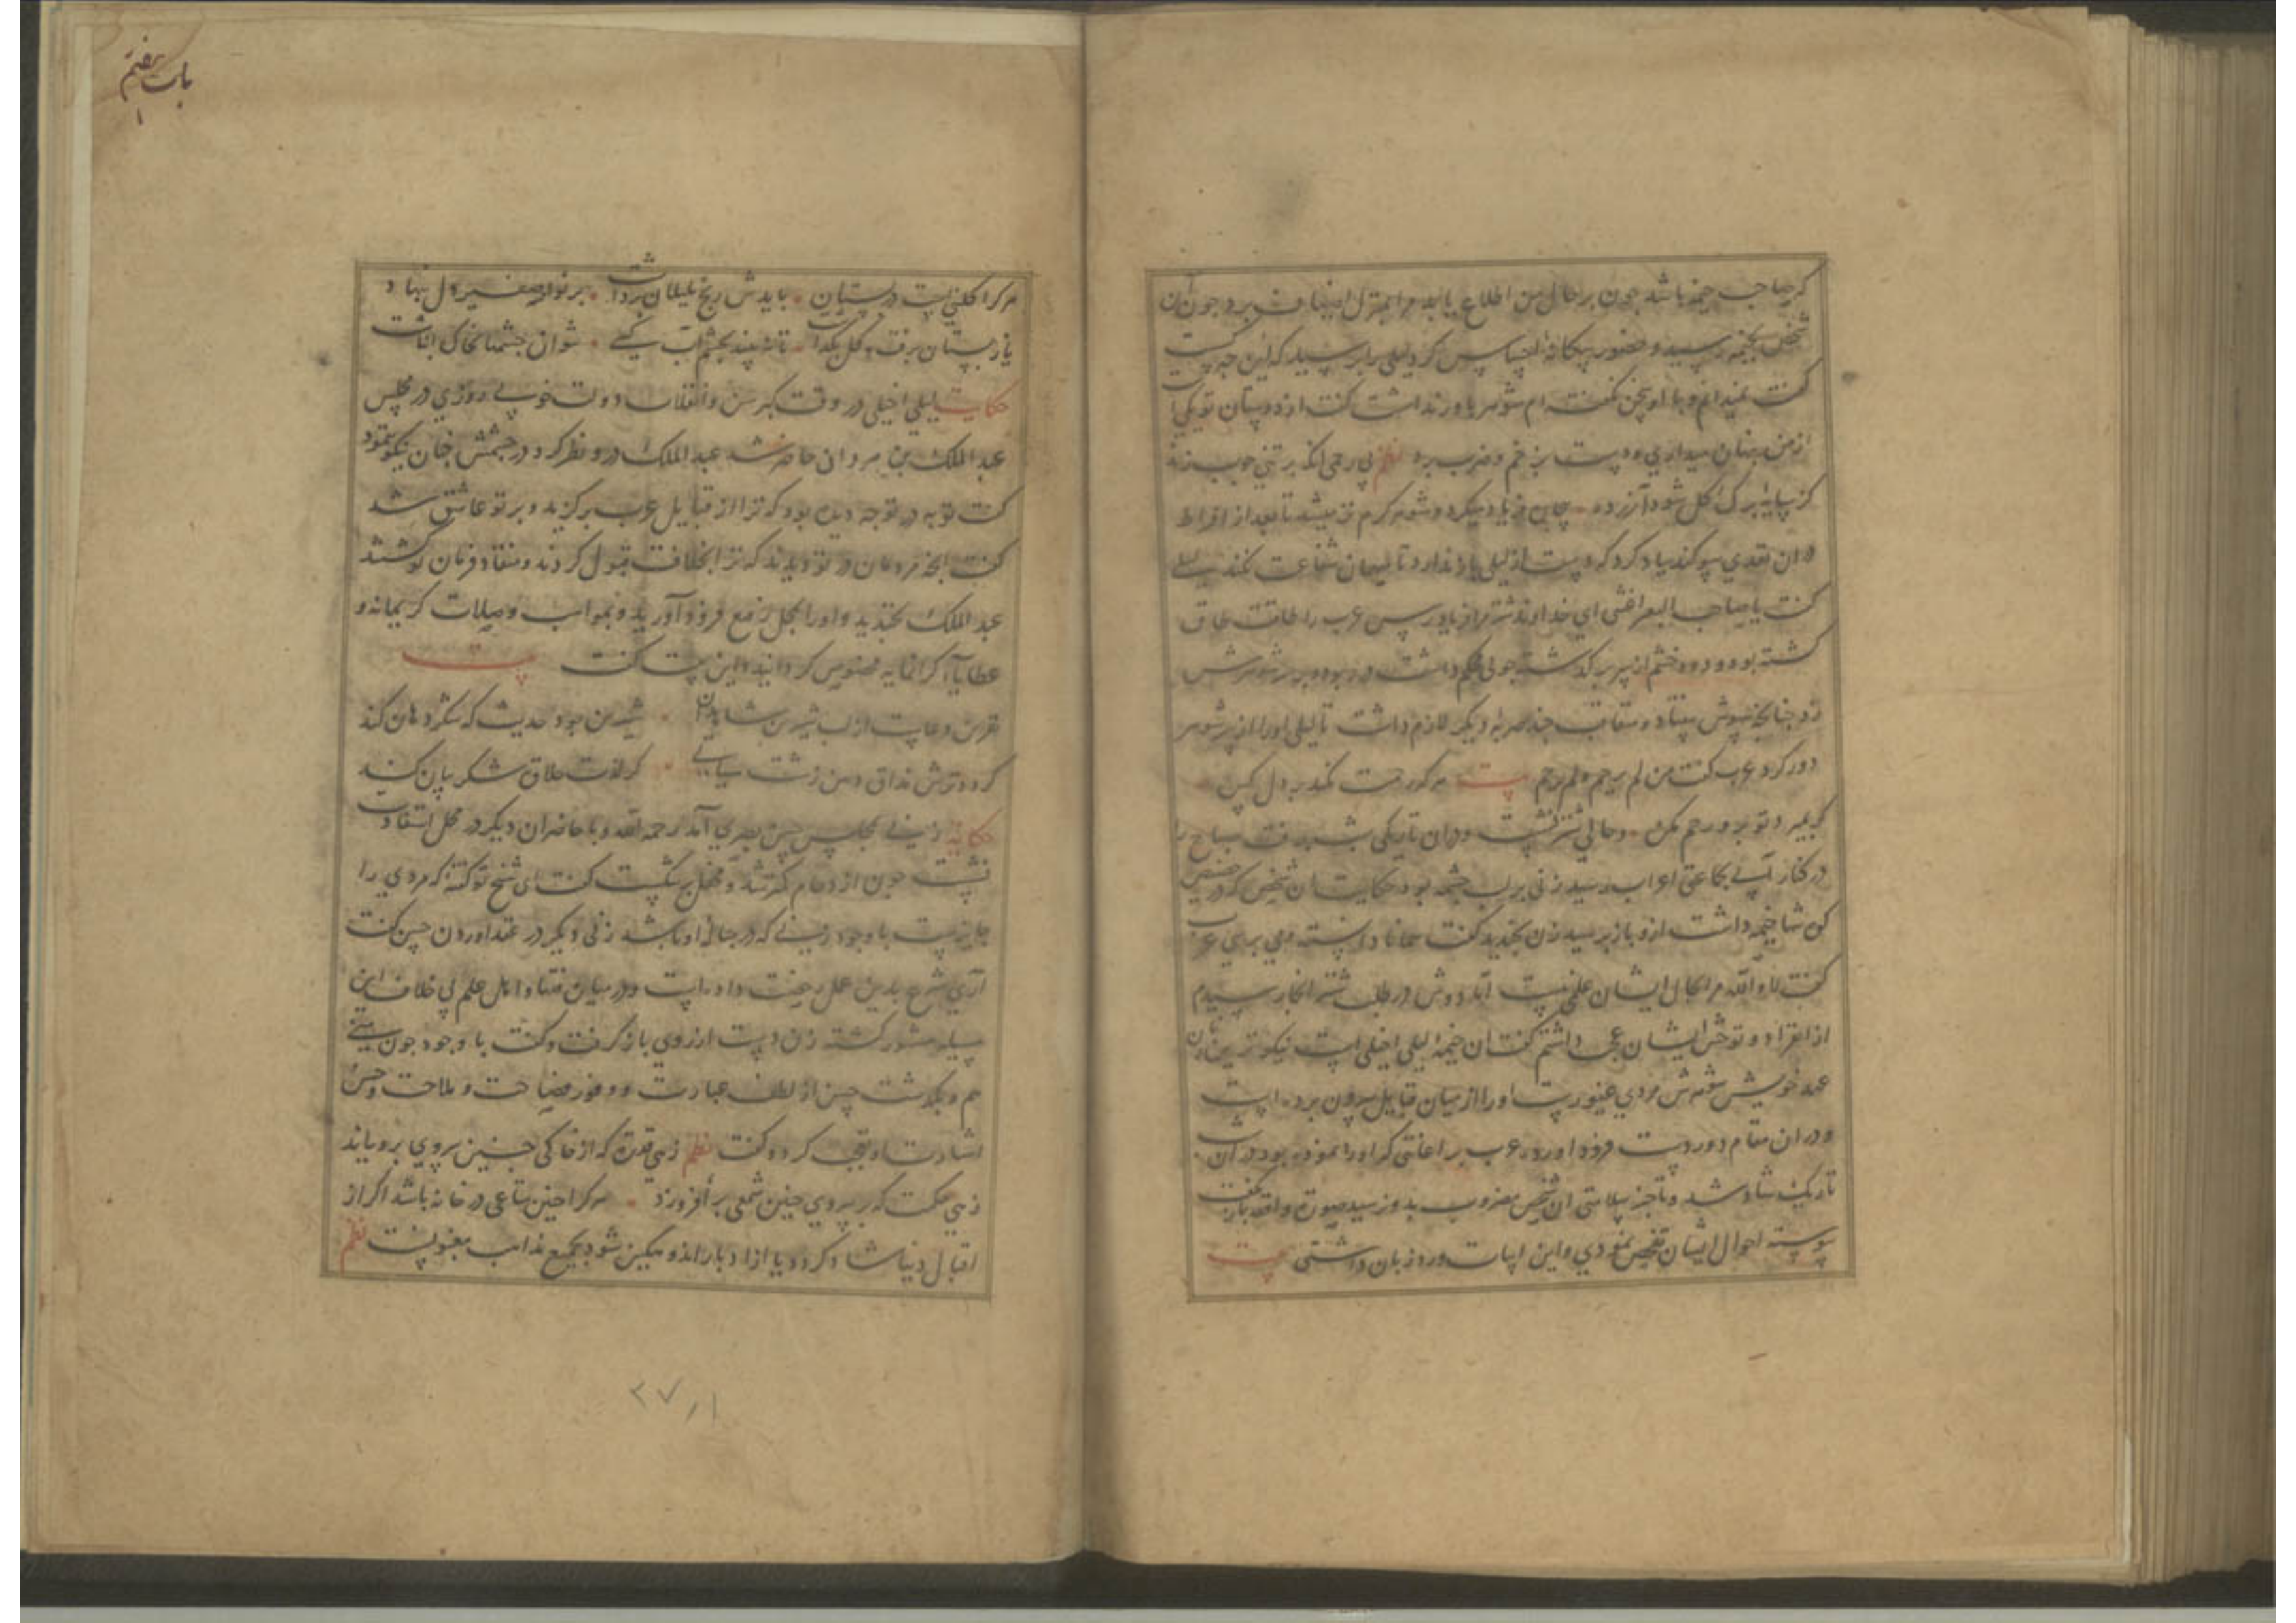 که صاحب خیمه باشد چون بر حال من اطلاع یابد مرا بمنزل اضیاف برد چون آن
شخص بخیمه رسید و حضور بیکانه احساس کرد لیلی را پرسید که این چه کست
کفت نمیدانم و با او سخن نکفته ام شوهر باور نداشت کفت از دوستان تو یکی
از من پنهان میداری و دست بزخم و ضرب برد نظم بی رحمی انکه بر تنی چوب زند
کز سایهٔ برک کل شود آزرده چنان فریاد میکرد و شوهر کرم تر میشد تا بعد از افراط
دران تعدی سوکند یاد کرد که دست از لیلی باز ندارد تا میهمان شفاعت نکند لیلی
کفت یا صاحب البعیر اغثنی ای خداوند شتر مرا فریاد رس عرب را طاقت طاق
کشته بود و دود خشم از سر بر کذشته چوبی محکم داشت در ربود و بر سر شوهرش
زد چنانکه بیهوش بیفتاد و متعاقب چند ضربه دیکر لازم داشت تا لیلی او را از سر شوهر
دور کرد عرب کفت من لم یرحم لم یرحم بیت هر که رحمت نکند بر دل کس
کر بمیرد تو برو رحم مکن و حالی شتر نشست و دران تاریکی شب برفت صباح را
در کنار آبی بجماعتی اعراب رسید زنی بر لب چشمه بود حکایت ان شخص که در حضیض
کن شما خیمه داشت ازو باز پرسید زن بخندید کفت همانا دانسته می پرسی عرب
کفت لا و الله مرا بحال ایشان علمی نیست اما دوش در طلب شتر انجا رسیدم
از انفراد و توحش ایشان عجب داشتم کفت ان خیمه لیلی اخیلی است نیکوترین زنان
عهد خویش شوهرش مردی غیورست او را از میان قبایل بیرون برده است
و دران مقام دور دست فرود اورده عرب بر اعانتی که او را نموده بود دران شب
تاریک شاد شد و تا خبر سلامتی ان شخص مضروب بدو رسید صورت واقعه باز نکفت
پیوسته احوال ایشان تفحص نمودی و این ابیات ورد زبان داشتی بیت
باب هفتم
هر کرا کلبنیست در بستان بایدش رنج بلبلان برداشت بر نواء صفیر دل بنهاد
یا ز بستان برفت و کل بکذاشت تا نه بیند بچشم آب کسی نتوان چشمها بخاک انباشت
حکایت لیلی اخیلی در وقت کبر سن و انقلاب دولت خوبی روزی در مجلس
عبد الملک بن مروان حاضر شد عبد الملک درو نظر کرد در چشمش چنان نیکو ننمود
کفت توبه در تو چه دیده بود که ترا از قبایل عرب برکزید و بر تو عاشق شد
کفت انچه مردمان در تو دیدند که ترا بخلافت قبول کردند و منقاد فرمان کشتند
عبد الملک بخندید و او را بمحل رفیع فرود آورید و بمواهب و صلات کریمانه و
عطایاء کرانمایه مخصوص کردانید و این بیت کفت بیت
نفرین و عاب از لب شیرین شاهدان شیرین بود حدیث که شکر دهان کند
کر دو ترش مذاق دهن زشت سیاهی کر لذت حلاق شکر بیان کند
حکایة زنی بمجلس حسن بصری آمد رحمه الله و با حاضران دیکر در محل استفادت
نشست چون ازدحام کمتر شد و محفل بشکست کفت ای شیخ تو کفتهٔ که مردی را
جایزست با وجود زنی که در حبالهٔ او باشد زنی دیکر در عقد اوردن حسن کفت
آری شرع بدین عمل رخصت داده است و در میان فقها و اهل علم بی خلاف این
مسیله مشهور کشته زن دست از روی باز کرفت و کفت با وجود چون منی
هم و بکذشت حسن از لطف عبارت و وفور فصاحت و ملاحت و حسن
اشارت او تعجب کرد و کفت نظم زهی قدرت که از خاکی چنین سروی برویاند
زهی حکمت که بر سروی چنین شمعی برافروزد هر کرا چنین متاعی در خانه باشد اکر از
اقبال دنیا شاد کردد یا از ادبار اندوهکین شود بجمیع مذاهب مغبونست نظم
۲۷۱